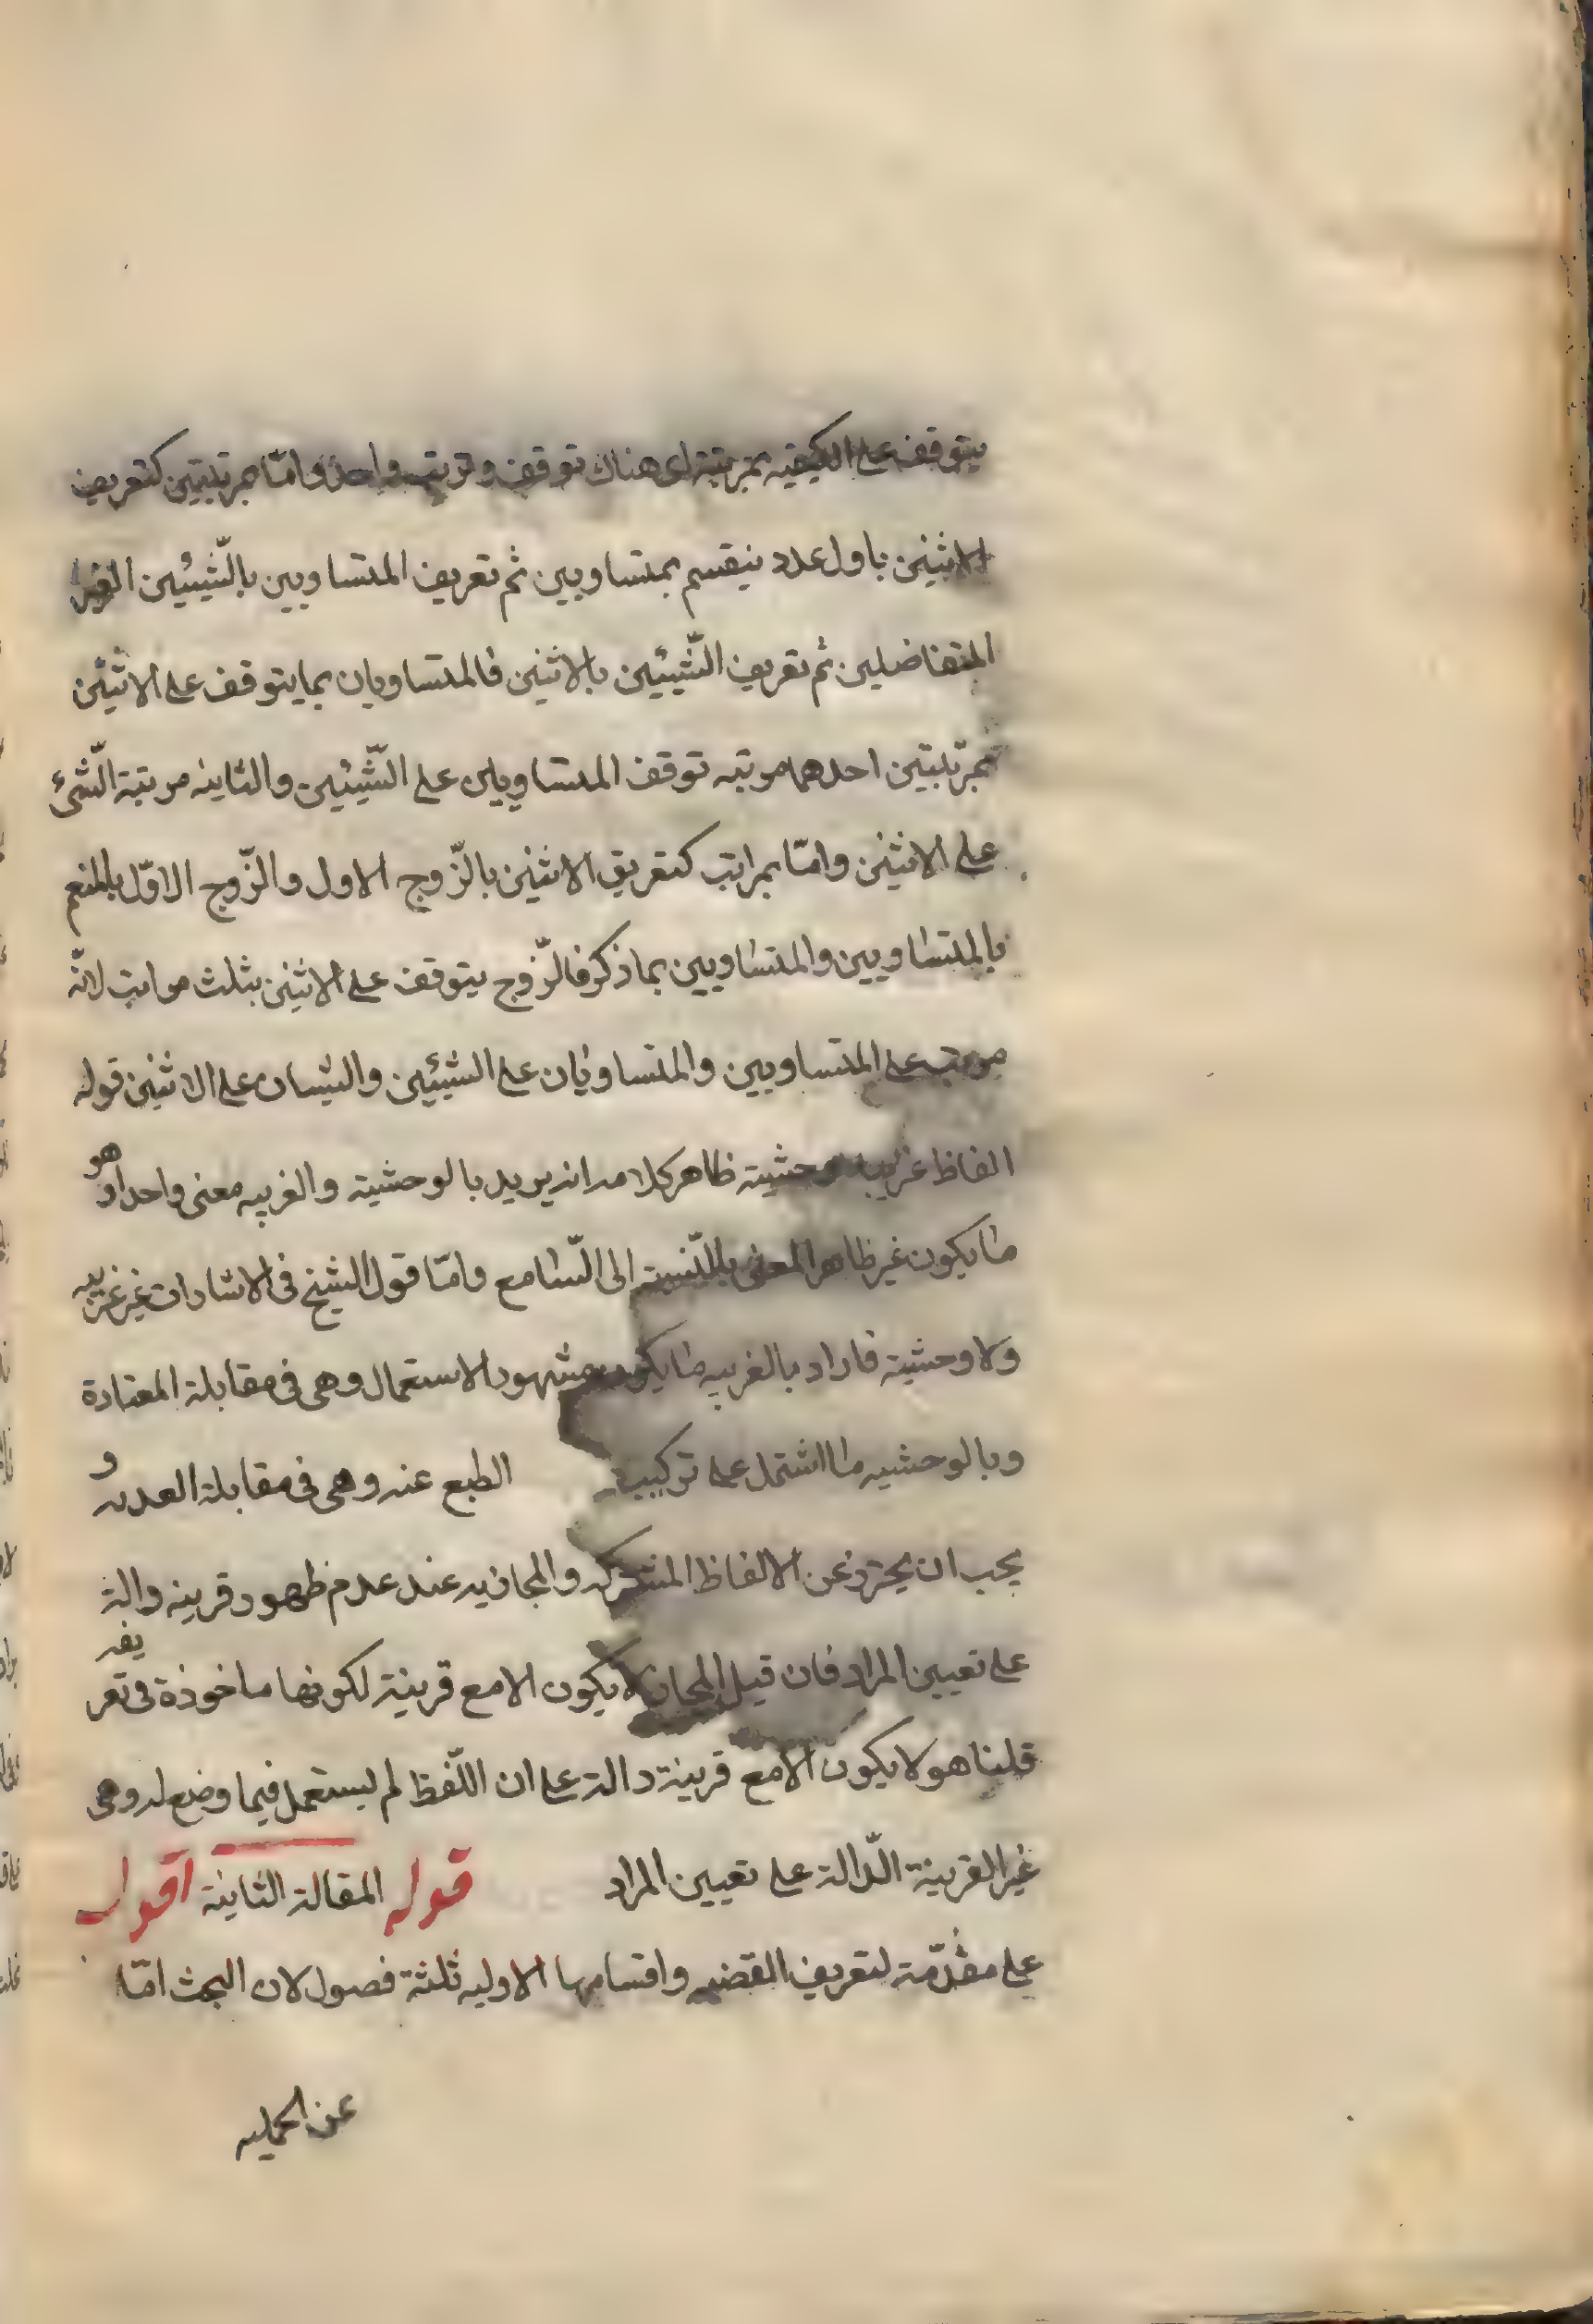 يتوقف على الكيفيه بمرتبة اى هناك توقف وترتب واحد وامّا بمرتبتين كتعريف
الاثنين باول عدد ينقسم بمتساويين ثم تعريف المتساويين بالشّيئين الغير
المتفاضلين ثم تعريف الشّيئين بالاثنين فالمتساويان بما يتوقف على الاثنين
بمرّتبتين احدهما مرتبه توقف المتساويين على الشّيئين والثانيه مرتبة الشّئ
على الاثنين وامّا بمراتب كتعريق الاثنين بالزّوج الاول والزّوج الاوّل بالمنقسم
بالمتساويين والمتساويين بما ذكر فالزّوج يتوقف على الاثنين بثلث مراتب لانّه
مرتب على المتساويين والمتساويان على الشيئين والشيئان على الاثنين قوله
الفاظ غريبه وحشيته ظاهر كلامه انه يريد بالوحشيته والغريبه معنى واحدا وهو
ما يكون غير ظاهر المعنى بالنّسبته الى السّامع وامّا قول الشيخ فى الاشارات غير غريبه
ولا وحشيته فاراد بالغريبه ما يكون مشهود الاستعمال وهى فى مقابلة المعتادة
وبالوحشيه ما اشتمل على تركيب الطبع عنه وهى فى مقابلة العذبه و
يجب ان يحترز عن الالفاظ المشتركه والمجازيه عند عدم ظهور قرينه دالة
على تعيين المراد فان قيل المجاز لا يكون الا مع قرينة لكونها ماخوذة فى تعريفه
قلنا هو لا يكون الا مع قرينة دالة على ان اللّفظ لم يستعمل فيما وضع له وهى
غير القرينة الدّالة على تعيين المراد قوله المقالة الثانية اقول
على مقدّمة لتعريف القضيه واقسامها الاوليه ثلثة فصول لان البحث امّا
عن الحمليه